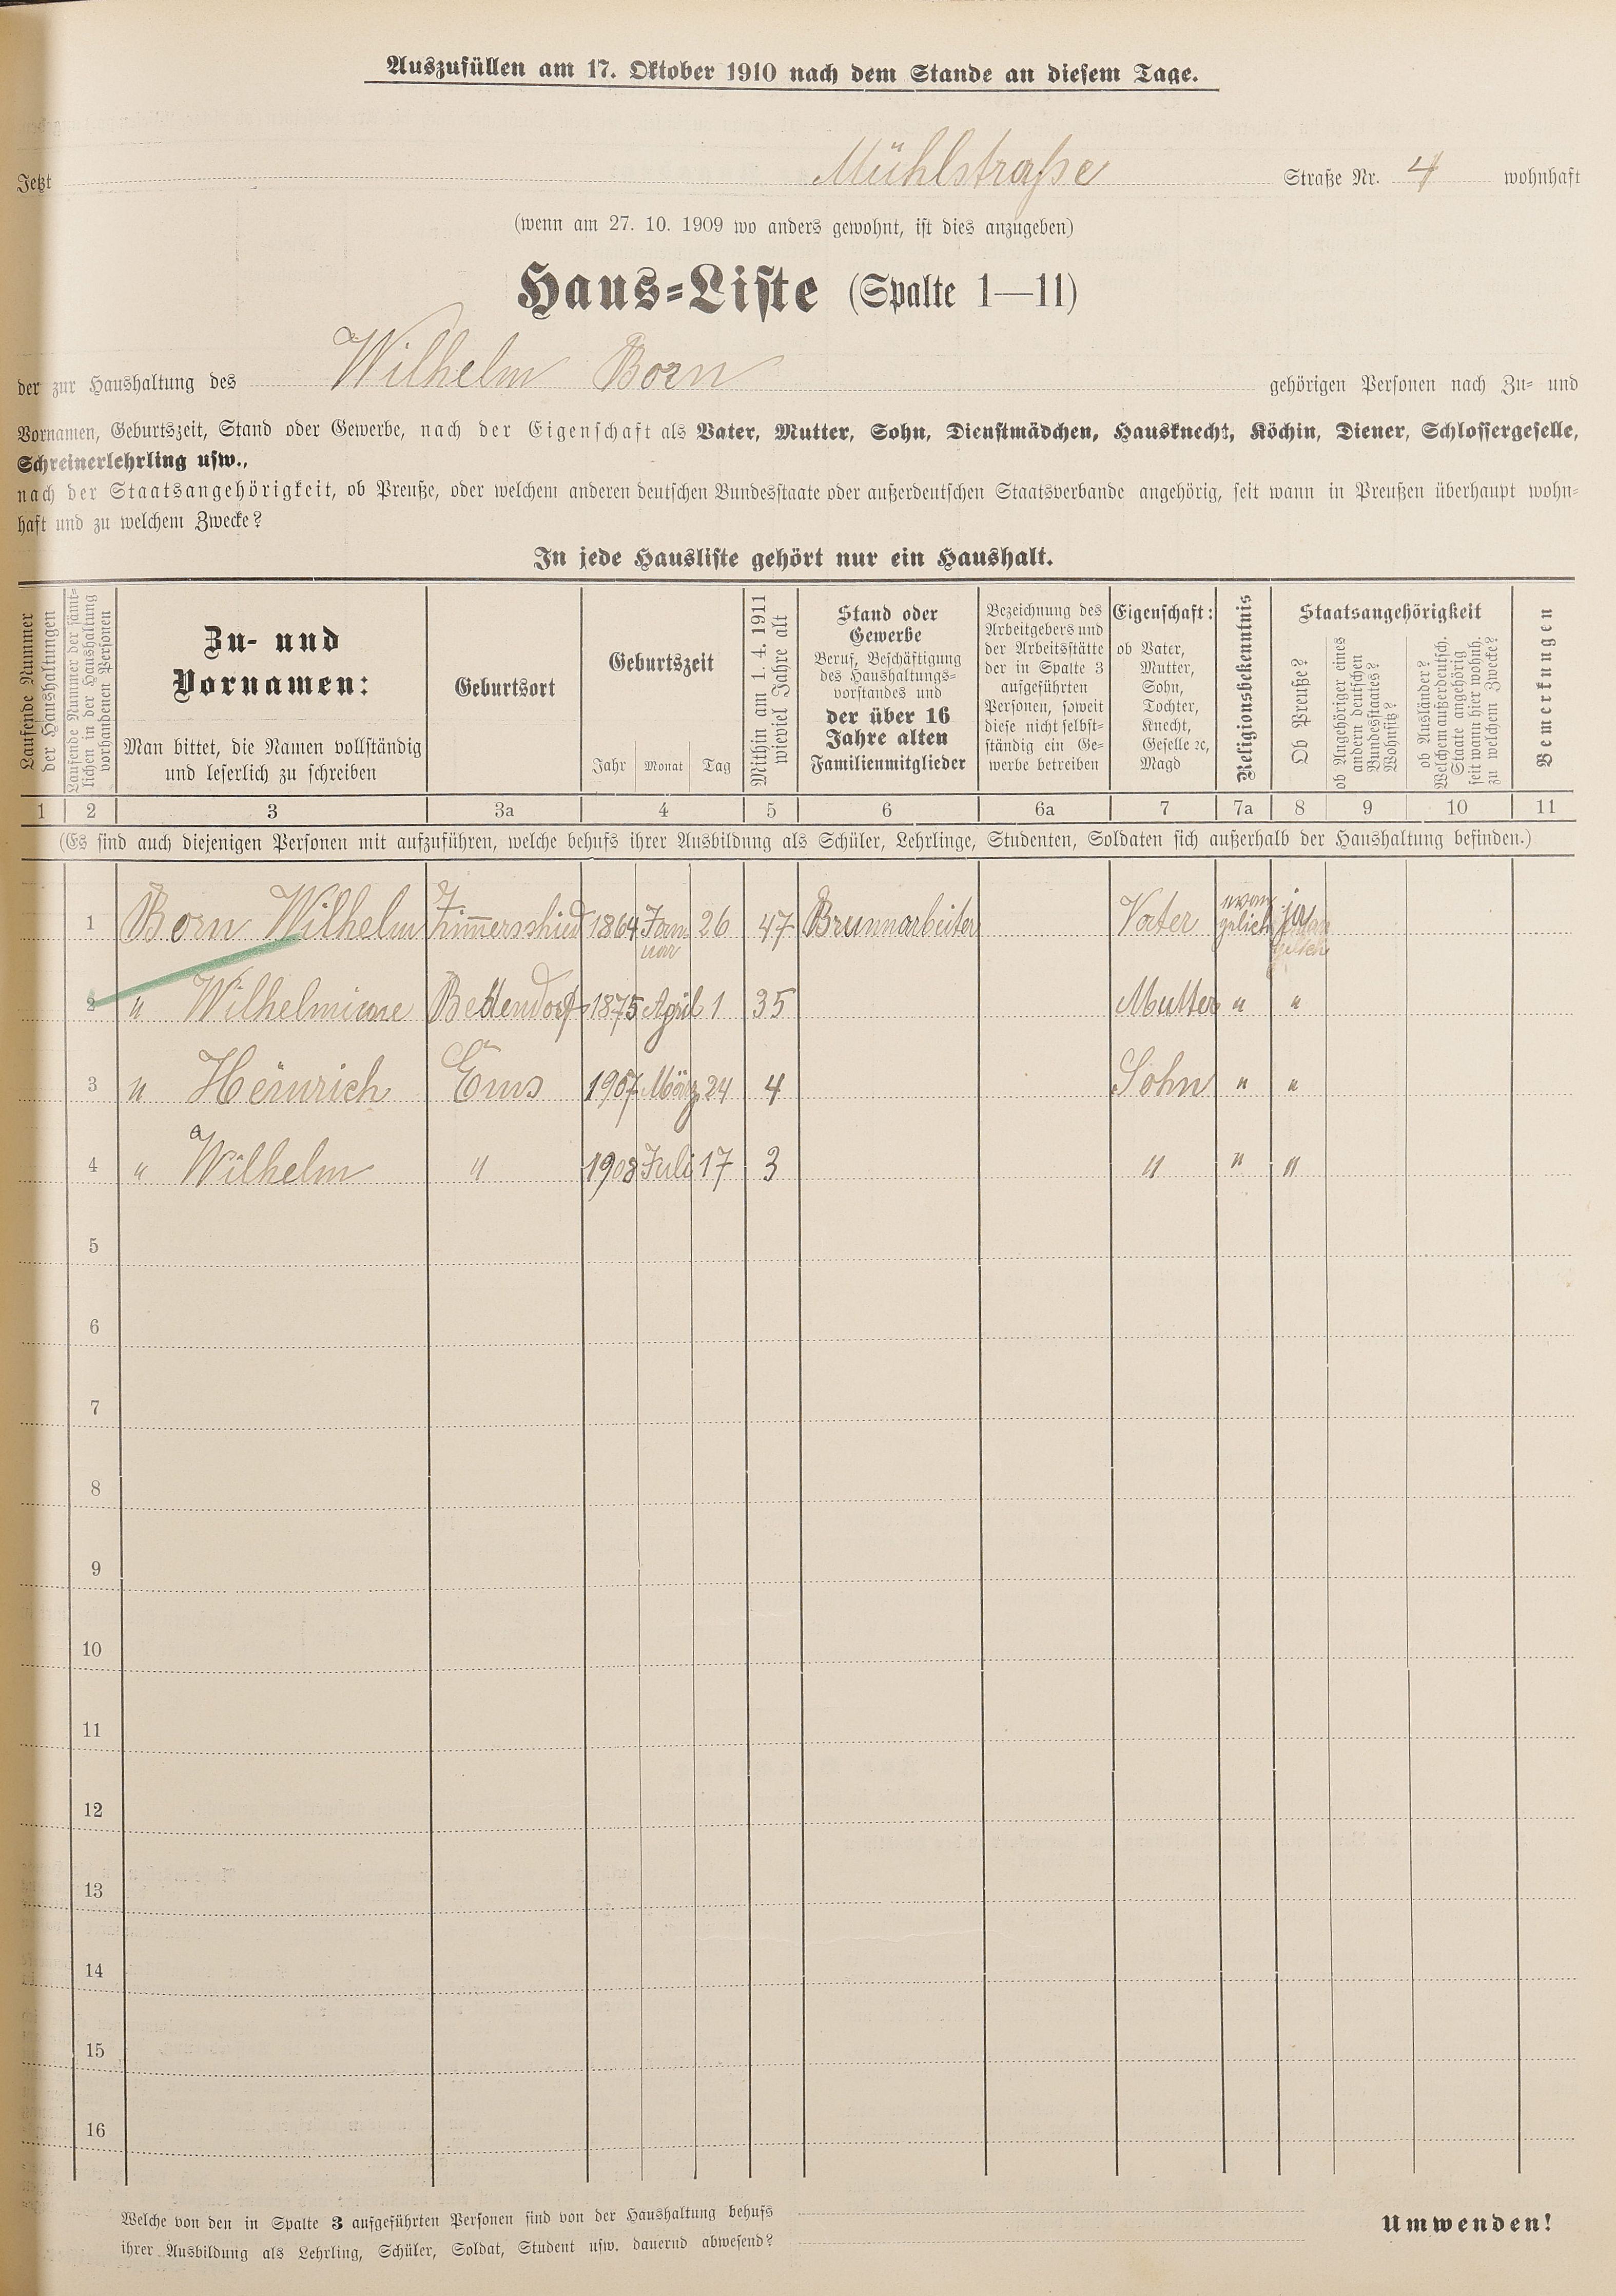 Auszufüllen am 17. Oktober 1910 nach dem Stande an diesem Tage.
Jetzt Mühlstraße Straße Nr. 4 wohnhaft
(wenn am 27. 10. 1909 wo anders gewohnt, ist dies anzugeben)
Haus-Liste (Spalte 1—11)
der zur Haushaltung des Wilhelm Born gehörigen Personen nach Zu- und
Vornamen, Geburtszeit, Stand oder Gewerbe, nach der Eigenschaft als Vater, Mutter, Sohn, Dienstmädchen, Hausknecht, Köchin, Diener, Schlossergeselle,
Schreinerlehrling usw.,
nach der Staatsangehörigkeit, ob Preuße, oder welchem anderen deutschen Bundesstaate oder außerdeutschen Staatsverbande angehörig, seit wann in Preußen überhaupt wohn-
haft und zu welchem Zwecke?
In jede Hausliste gehört nur ein Haushalt.
Laufende Nummer
der Haushaltungen
Laufende Nummer der sämt-
lichen in der Haushaltung
vorhandenen Personen
Zu- und
Vornamen:
Man bittet, die Namen vollständig
und leserlich zu schreiben
Geburtsort
Geburtszeit
Jahr Monat Tag
Mithin am 1. 4. 1911
wieviel Jahre alt
Stand oder
Gewerbe
Beruf, Beschäftigung
des Haushaltungs-
vorstandes und
der über 16
Jahre alten
Familienmitglieder
Bezeichnung des
Arbeitgebers und
der Arbeitsstätte
der in Spalte 3
aufgeführten
Personen, soweit
diese nicht selbst-
ständig ein Ge-
werbe betreiben
Eigenschaft:
ob Vater,
Mutter,
Sohn,
Tochter,
Knecht,
Geselle ꝛc,
Magd
Religionsbekenntnis
Staatsangehörigkeit
Ob Preuße?
ob Angehöriger eines
andern deutschen
Bundesstaates?
Wohnsitz?
ob Ausländer?
Welchem außerdeutsch.
Staate angehörig
seit wann hier wohnh.
zu welchem Zwecke?
Bemerkungen
1 2 3 3a 4 5 6 6a 7 7a 8 9 10 11
(Es sind auch diejenigen Personen mit aufzuführen, welche behufs ihrer Ausbildung als Schüler, Lehrlinge, Studenten, Soldaten sich außerhalb der Haushaltung befinden.)
1 Born Wilhelm Zimmerschied 1864 Januar 26 47 Brunnarbeiter Vater evangelich ja
2 " Wilhelmine Bettendorf 1875 April 1 35 Mutter " "
3 " Heinrich Ems 1907 März 24 4 Sohn " "
4 " Wilhelm " 1908 Juli 17 3 " " "
5
6
7
8
9
10
11
12
13
14
15
16
Welche von den in Spalte 3 aufgeführten Personen sind von der Haushaltung behufs
ihrer Ausbildung als Lehrling, Schüler, Soldat, Student usw. dauernd abwesend?
Umwenden!